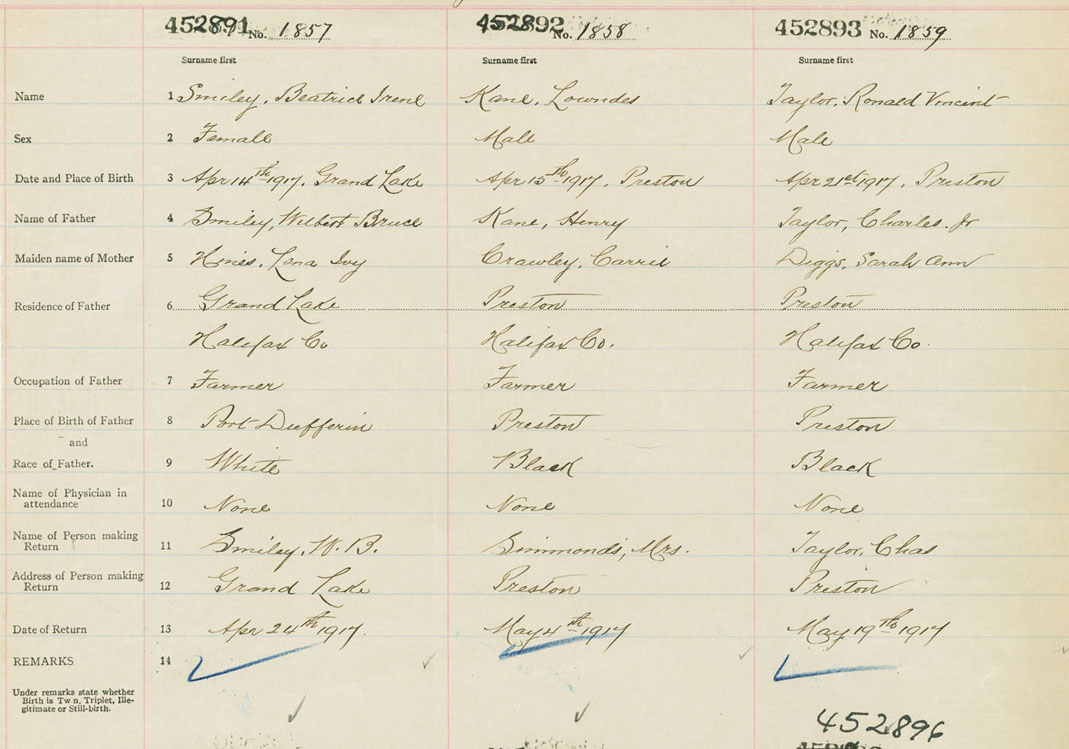 452891 No. 1857 452892 No. 1858 452893 No. 1859
Surname first Surname first Surname first
Name 1 Smiley, Beatrice Irene Kane, Lowndes Taylor, Ronald Vincent
Sex 2 Female Male Male
Date and Place of Birth 3 Apr 14th 1917, Grand Lake Apr 15th 1917, Preston Apr 21st 1917, Preston
Name of Father 4 Smiley, Wilbert Bruce Kane, Henry Taylor, Charles. Jr
Maiden name of Mother 5 Hines, Lena Ivy Crawley, Carrie Diggs, Sarah Ann
Residence of Father 6 Grand Lake Preston Preston
Halifax Co Halifax Co. Halifax Co.
Occupation of Father 7 Farmer Farmer Farmer
Place of Birth of Father 8 Port Dufferin Preston Preston
and
Race of Father. 9 White Black Black
Name of Physician in
attendance 10 None None None
Name of Person making
Return 11 Smiley, W. B. Simmonds, Mrs. Taylor, Chas
Address of Person making
Return 12 Grand Lake Preston Preston
Date of Return 13 Apr 24th 1917. May 4th 1917 May 19th 1917
REMARKS 14
Under remarks state whether
Birth is Tw n, Triplet, Ille-
gitimate or Still-birth.
452896